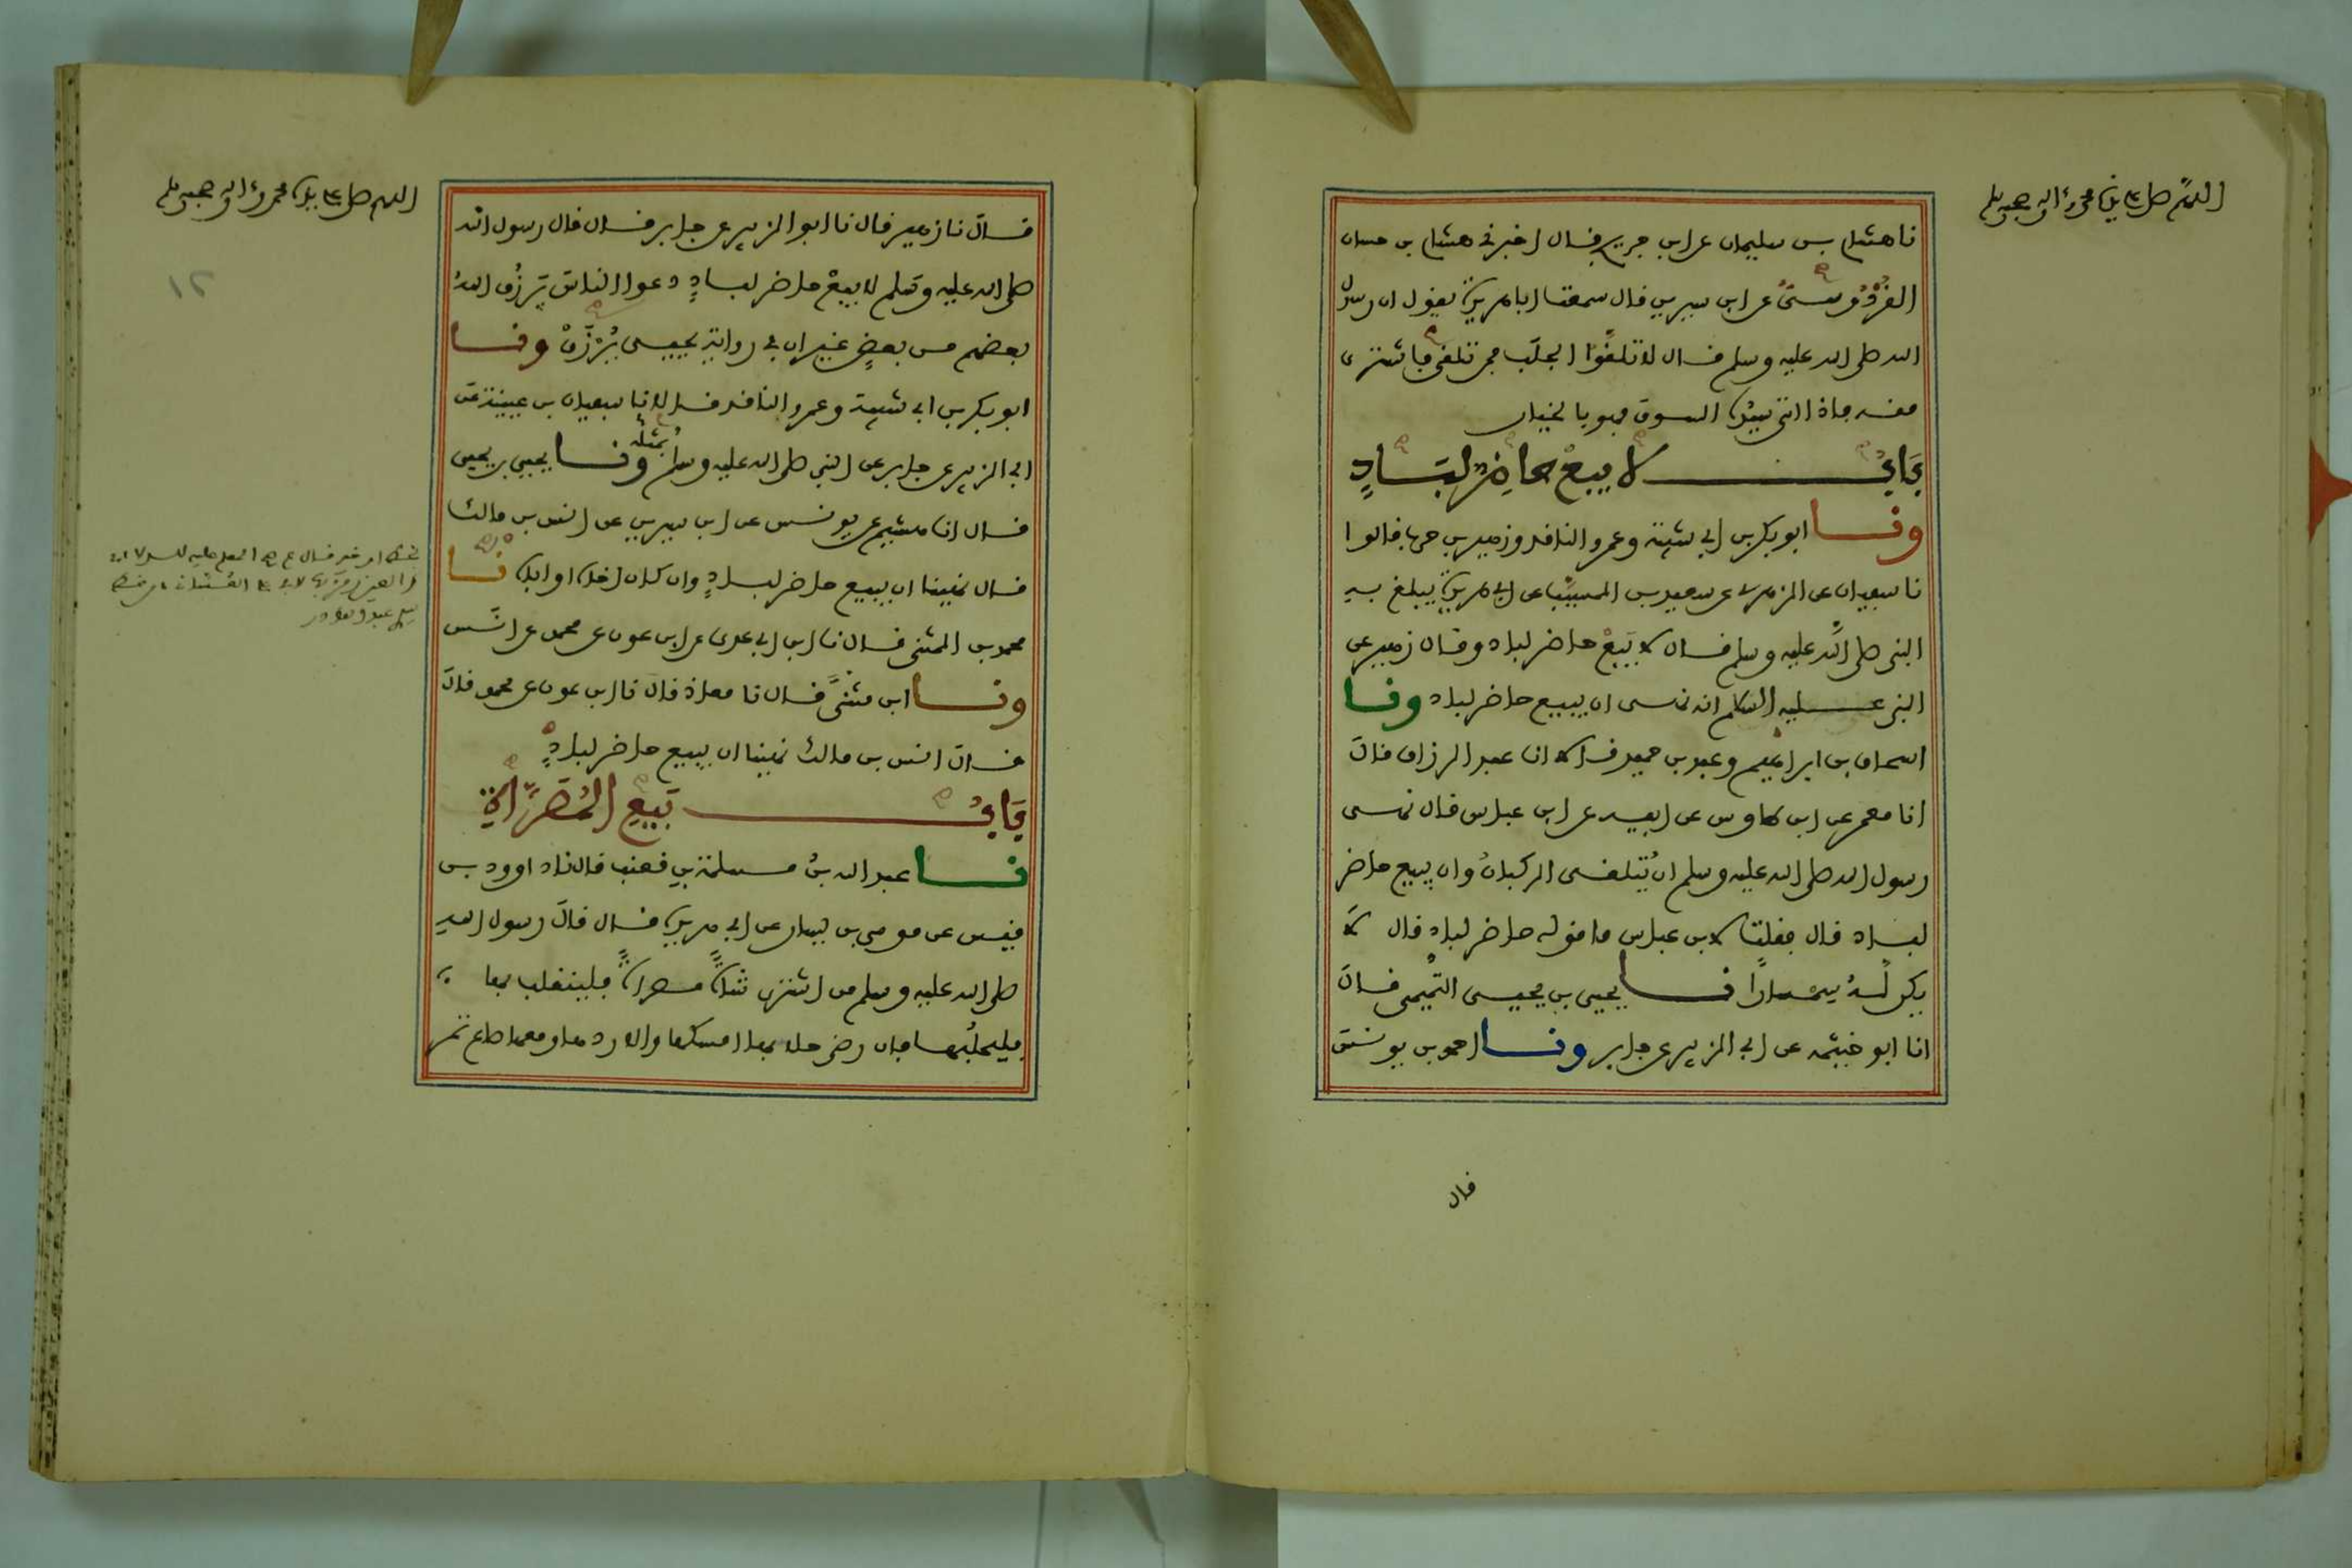 اللهم صل على سيدنا محمد وعلى اله وصحبه وسلم
نا هشام بن سليمان عن ابن جريج قال اخبرني هشام بن حسان
القُرْدُوسىّ عن ابن سيرين قال سمعت ابا هريرة يقول ان رسول
الله صلى الله عليه وسلم قال لا تلقَّوُا الجلَب فمن تلقى فاشترى
منه فاذا اتى سيدُه السوق فهو بالخيار
بَابُ لا يبِعْ حاضِرٌ لبَادٍ
ونا ابو بكر بن ابي شيبة وعمرو الناقد وزهير بن حرب قالوا
نا سفيان عن الزهرى عن سعيد بن المسيَّب عن ابي هريرة يبلغ به
النبي صلى الله عليه وسلم قال لا يَبِعْ حاضر لباد وقال زهير عن
النبي عليه السلام انه نهى ان يبيع حاضر لباد ونا
اسحاق بن ابراهيم وعبد بن حميد قالا انا عبد الرزاق قال
انا معمر عن ابن طاوس عن ابيه عن ابن عباس قال نهى
رسول الله صلى الله عليه وسلم ان يُتلقى الركبانُ وان يبيع حاضر
لباد قال فقلت لابن عباس ما قوله حاضر لباد قال لا
يكن لَهُ سِمْسارًا نا يحيى بن يحيى التَّميمي قال
انا ابو خيثمه عن ابي الزبير عن جابر ونا احمد بن يونس
قال
اللهم صل على سيدنا محمد وعلى اله وصحبه وسلم
١٢
قال نا زهير قال نا ابو الزبير عن جابر قال قال رسول الله
صلى الله عليه وسلم لا يبِعْ حاضر لبادٍ دعوا الناس يَرْزُقِ اللهُ
بعضهم من بعضٍ غير ان في رواية يحيى يُرْزَقْ ونا
ابو بكر بن ابي شيبة وعمرو الناقد قالا نا سفيان بن عيينة عن
ابي الزبير عن جابر عن النبي صلى الله عليه وسلم بمثله ونا يحيى بن يحيى
قال انا هشيم عن يونس عن ابن سيرين عن انس بن مالك
قال نُهينا ان يبيع حاضر لبادٍ وان كان اخاه او اباه نا
محمد بن المثنى قال نا ابن ابي عدى عن ابن عون عن محمد عن انَس
ونا ابن مثنىًّ قال نا معاذ قال نا ابن عون عن محمد قال
قال انس بن مالك نهينا ان يبيع حاضر لبادٍ
بَابُ بَيْعِ المُصَرَّاةِ
نا عبد الله بنُ مسلمة بن قعنب قال نا داوود بن
قيس عن موسى بن يسار عن ابي هريرة قال قال رسول الله
صلى الله عليه وسلم من اشترى شاةً مصراةً فلينقلب بها
فليحلُبْها فان رضى حلابها امسكها والا ردها ومعها صاع تمر